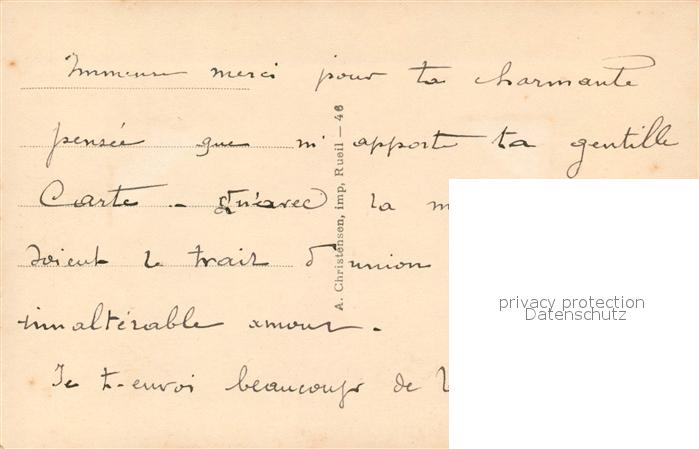 Immense merci pour ta charmante
pensée que m'apporte ta gentille
Carte - Qu'avec la m
soient le trait d'union
inaltérable amour.
Je t-envoi beaucoup de
A. Christensen, imp, Rueil — 46
privacy protection
Datenschutz